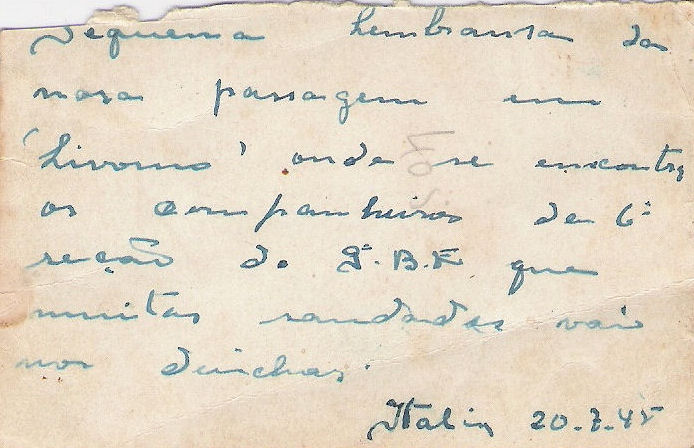 Pequena Lembransa da
nosa passagem em
'Livorno' onde se encontra
os companheiros da 6ª
seção do 9º.B.E que
muitas saudades vaio
nos deichar.
Italia 20.7.45